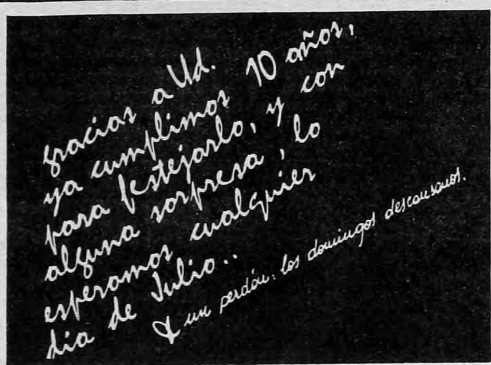 gracias a Ud.
ya cumplimos 10 años,
para festejarlo, y con
alguna sorpresa, lo
esperamos cualquier
día de Julio..
& un perdón: los domingos descansamos.